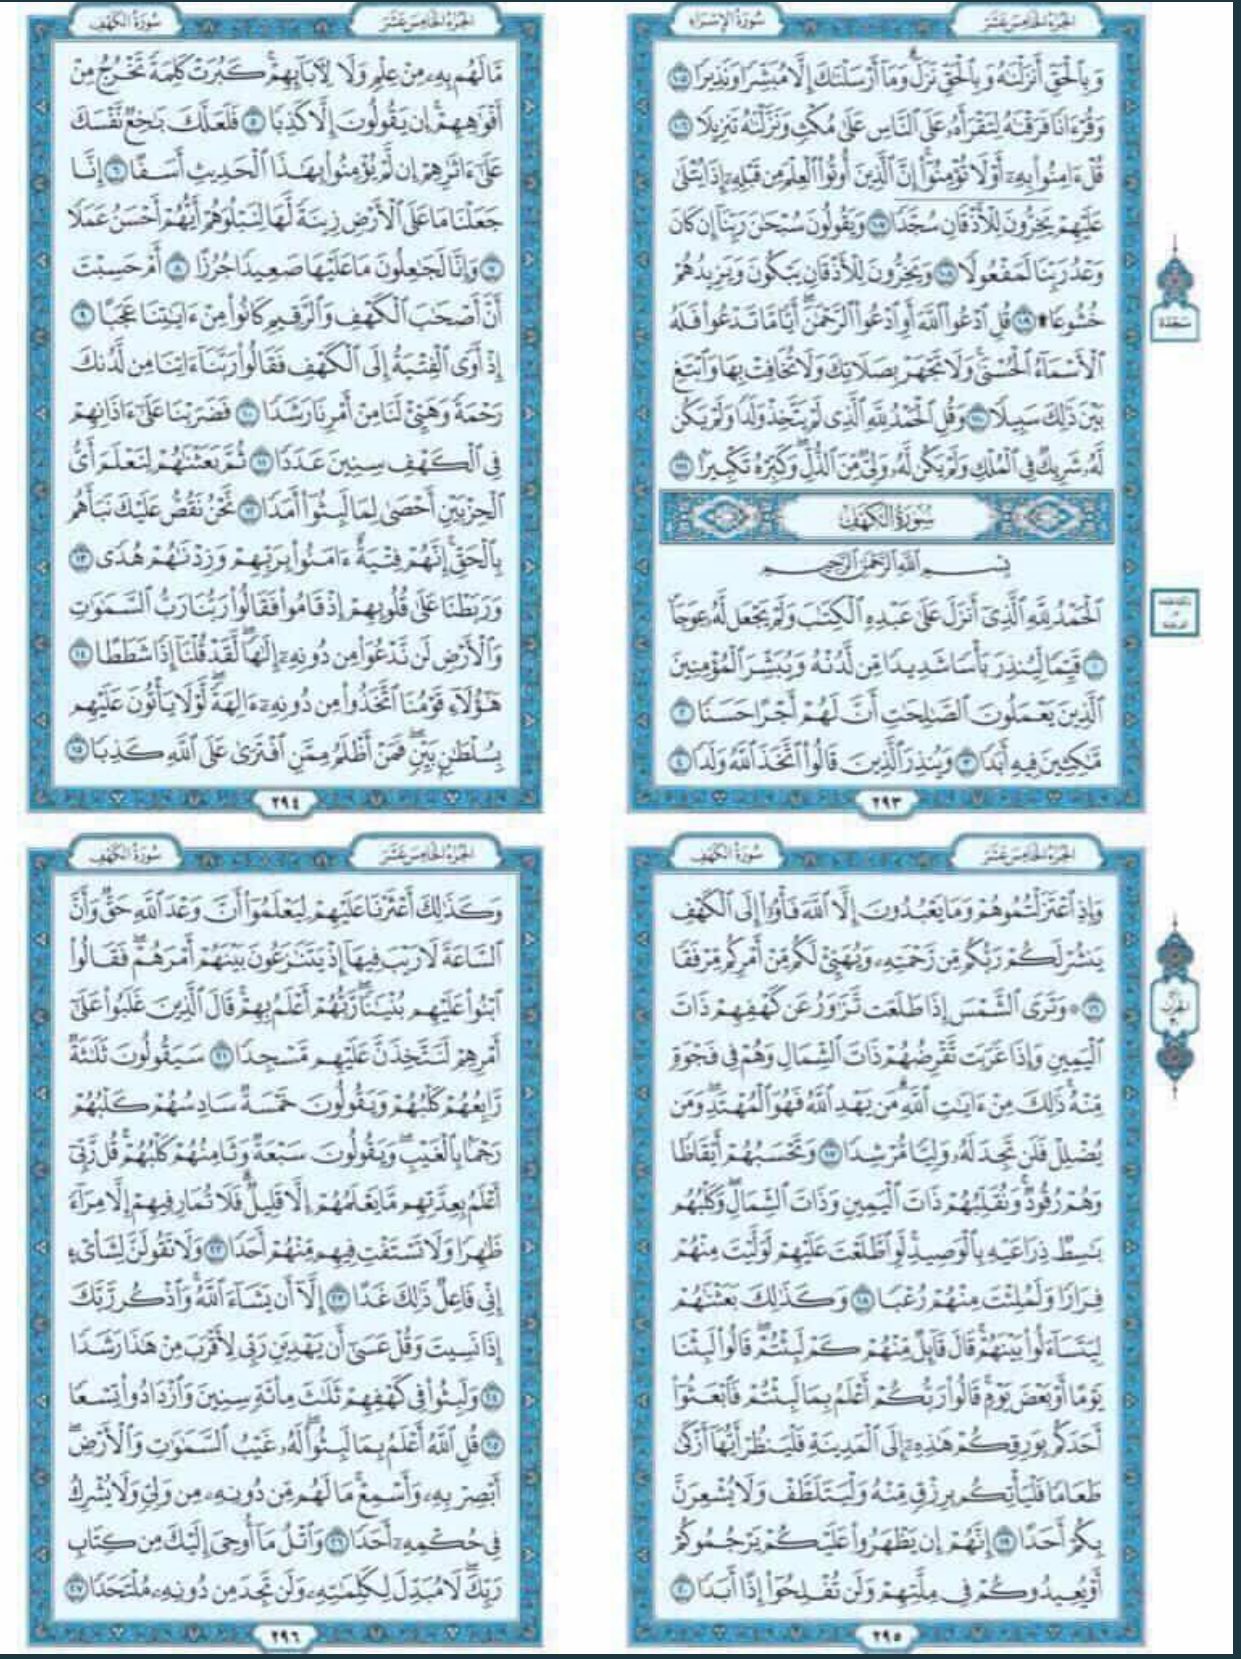 الجزء الخامس عشر
سورة الإسراء
وَبِٱلْحَقِّ أَنزَلْنَٰهُ وَبِٱلْحَقِّ نَزَلَ ۗ وَمَآ أَرْسَلْنَٰكَ إِلَّا مُبَشِّرًا وَنَذِيرًا ١٠٥
وَقُرْءَانًا فَرَقْنَٰهُ لِتَقْرَأَهُۥ عَلَى ٱلنَّاسِ عَلَىٰ مُكْثٍ وَنَزَّلْنَٰهُ تَنزِيلًا ١٠٦
قُلْ ءَامِنُوا۟ بِهِۦٓ أَوْ لَا تُؤْمِنُوٓا۟ ۚ إِنَّ ٱلَّذِينَ أُوتُوا۟ ٱلْعِلْمَ مِن قَبْلِهِۦٓ إِذَا يُتْلَىٰ
عَلَيْهِمْ يَخِرُّونَ لِلْأَذْقَانِ سُجَّدًا ١٠٧ وَيَقُولُونَ سُبْحَٰنَ رَبِّنَآ إِن كَانَ
وَعْدُ رَبِّنَا لَمَفْعُولًا ١٠٨ وَيَخِرُّونَ لِلْأَذْقَانِ يَبْكُونَ وَيَزِيدُهُمْ
خُشُوعًا ۩ ١٠٩ قُلِ ٱدْعُوا۟ ٱللَّهَ أَوِ ٱدْعُوا۟ ٱلرَّحْمَٰنَ ۖ أَيًّا مَّا تَدْعُوا۟ فَلَهُ
ٱلْأَسْمَآءُ ٱلْحُسْنَىٰ ۚ وَلَا تَجْهَرْ بِصَلَاتِكَ وَلَا تُخَافِتْ بِهَا وَٱبْتَغِ
بَيْنَ ذَٰلِكَ سَبِيلًا ١١٠ وَقُلِ ٱلْحَمْدُ لِلَّهِ ٱلَّذِى لَمْ يَتَّخِذْ وَلَدًا وَلَمْ يَكُن
لَّهُۥ شَرِيكٌ فِى ٱلْمُلْكِ وَلَمْ يَكُن لَّهُۥ وَلِىٌّ مِّنَ ٱلذُّلِّ ۖ وَكَبِّرْهُ تَكْبِيرًۢا ١١١
سورة الكهف
بِسْمِ ٱللَّهِ ٱلرَّحْمَٰنِ ٱلرَّحِيمِ
ٱلْحَمْدُ لِلَّهِ ٱلَّذِىٓ أَنزَلَ عَلَىٰ عَبْدِهِ ٱلْكِتَٰبَ وَلَمْ يَجْعَل لَّهُۥ عِوَجَا
١ قَيِّمًا لِّيُنذِرَ بَأْسًا شَدِيدًا مِّن لَّدُنْهُ وَيُبَشِّرَ ٱلْمُؤْمِنِينَ
ٱلَّذِينَ يَعْمَلُونَ ٱلصَّٰلِحَٰتِ أَنَّ لَهُمْ أَجْرًا حَسَنًا ٢
مَّٰكِثِينَ فِيهِ أَبَدًا ٣ وَيُنذِرَ ٱلَّذِينَ قَالُوا۟ ٱتَّخَذَ ٱللَّهُ وَلَدًا ٤
٢٩٣
سجدة
الجزء الخامس عشر
سورة الكهف
مَّا لَهُم بِهِۦ مِنْ عِلْمٍ وَلَا لِءَابَآئِهِمْ ۚ كَبُرَتْ كَلِمَةً تَخْرُجُ مِنْ
أَفْوَٰهِهِمْ ۚ إِن يَقُولُونَ إِلَّا كَذِبًا ٥ فَلَعَلَّكَ بَٰخِعٌ نَّفْسَكَ
عَلَىٰٓ ءَاثَٰرِهِمْ إِن لَّمْ يُؤْمِنُوا۟ بِهَٰذَا ٱلْحَدِيثِ أَسَفًا ٦ إِنَّا
جَعَلْنَا مَا عَلَى ٱلْأَرْضِ زِينَةً لَّهَا لِنَبْلُوَهُمْ أَيُّهُمْ أَحْسَنُ عَمَلًا
٧ وَإِنَّا لَجَٰعِلُونَ مَا عَلَيْهَا صَعِيدًا جُرُزًا ٨ أَمْ حَسِبْتَ
أَنَّ أَصْحَٰبَ ٱلْكَهْفِ وَٱلرَّقِيمِ كَانُوا۟ مِنْ ءَايَٰتِنَا عَجَبًا ٩
إِذْ أَوَى ٱلْفِتْيَةُ إِلَى ٱلْكَهْفِ فَقَالُوا۟ رَبَّنَآ ءَاتِنَا مِن لَّدُنكَ
رَحْمَةً وَهَيِّئْ لَنَا مِنْ أَمْرِنَا رَشَدًا ١٠ فَضَرَبْنَا عَلَىٰٓ ءَاذَانِهِمْ
فِى ٱلْكَهْفِ سِنِينَ عَدَدًا ١١ ثُمَّ بَعَثْنَٰهُمْ لِنَعْلَمَ أَىُّ
ٱلْحِزْبَيْنِ أَحْصَىٰ لِمَا لَبِثُوٓا۟ أَمَدًا ١٢ نَّحْنُ نَقُصُّ عَلَيْكَ نَبَأَهُم
بِٱلْحَقِّ ۚ إِنَّهُمْ فِتْيَةٌ ءَامَنُوا۟ بِرَبِّهِمْ وَزِدْنَٰهُمْ هُدًى ١٣
وَرَبَطْنَا عَلَىٰ قُلُوبِهِمْ إِذْ قَامُوا۟ فَقَالُوا۟ رَبُّنَا رَبُّ ٱلسَّمَٰوَٰتِ
وَٱلْأَرْضِ لَن نَّدْعُوَا۟ مِن دُونِهِۦٓ إِلَٰهًا ۖ لَّقَدْ قُلْنَآ إِذًا شَطَطًا ١٤
هَٰٓؤُلَآءِ قَوْمُنَا ٱتَّخَذُوا۟ مِن دُونِهِۦٓ ءَالِهَةً ۖ لَّوْلَا يَأْتُونَ عَلَيْهِم
بِسُلْطَٰنٍۭ بَيِّنٍ ۖ فَمَنْ أَظْلَمُ مِمَّنِ ٱفْتَرَىٰ عَلَى ٱللَّهِ كَذِبًا ١٥
٢٩٤
الجزء الخامس عشر
سورة الكهف
وَإِذِ ٱعْتَزَلْتُمُوهُمْ وَمَا يَعْبُدُونَ إِلَّا ٱللَّهَ فَأْوُۥٓا۟ إِلَى ٱلْكَهْفِ
يَنشُرْ لَكُمْ رَبُّكُم مِّن رَّحْمَتِهِۦ وَيُهَيِّئْ لَكُم مِّنْ أَمْرِكُم مِّرْفَقًا
١٦ ۞ وَتَرَى ٱلشَّمْسَ إِذَا طَلَعَت تَّزَٰوَرُ عَن كَهْفِهِمْ ذَاتَ
ٱلْيَمِينِ وَإِذَا غَرَبَت تَّقْرِضُهُمْ ذَاتَ ٱلشِّمَالِ وَهُمْ فِى فَجْوَةٍ
مِّنْهُ ۚ ذَٰلِكَ مِنْ ءَايَٰتِ ٱللَّهِ ۗ مَن يَهْدِ ٱللَّهُ فَهُوَ ٱلْمُهْتَدِ ۖ وَمَن
يُضْلِلْ فَلَن تَجِدَ لَهُۥ وَلِيًّا مُّرْشِدًا ١٧ وَتَحْسَبُهُمْ أَيْقَاظًا
وَهُمْ رُقُودٌ ۚ وَنُقَلِّبُهُمْ ذَاتَ ٱلْيَمِينِ وَذَاتَ ٱلشِّمَالِ ۖ وَكَلْبُهُم
بَٰسِطٌ ذِرَاعَيْهِ بِٱلْوَصِيدِ ۚ لَوِ ٱطَّلَعْتَ عَلَيْهِمْ لَوَلَّيْتَ مِنْهُمْ
فِرَارًا وَلَمُلِئْتَ مِنْهُمْ رُعْبًا ١٨ وَكَذَٰلِكَ بَعَثْنَٰهُمْ
لِيَتَسَآءَلُوا۟ بَيْنَهُمْ ۚ قَالَ قَآئِلٌ مِّنْهُمْ كَمْ لَبِثْتُمْ ۖ قَالُوا۟ لَبِثْنَا
يَوْمًا أَوْ بَعْضَ يَوْمٍ ۚ قَالُوا۟ رَبُّكُمْ أَعْلَمُ بِمَا لَبِثْتُمْ فَٱبْعَثُوٓا۟
أَحَدَكُم بِوَرِقِكُمْ هَٰذِهِۦٓ إِلَى ٱلْمَدِينَةِ فَلْيَنظُرْ أَيُّهَآ أَزْكَىٰ
طَعَامًا فَلْيَأْتِكُم بِرِزْقٍ مِّنْهُ وَلْيَتَلَطَّفْ وَلَا يُشْعِرَنَّ
بِكُمْ أَحَدًا ١٩ إِنَّهُمْ إِن يَظْهَرُوا۟ عَلَيْكُمْ يَرْجُمُوكُمْ
أَوْ يُعِيدُوكُمْ فِى مِلَّتِهِمْ وَلَن تُفْلِحُوٓا۟ إِذًا أَبَدًا ٢٠
٢٩٥
الحزب
الجزء الخامس عشر
سورة الكهف
وَكَذَٰلِكَ أَعْثَرْنَا عَلَيْهِمْ لِيَعْلَمُوٓا۟ أَنَّ وَعْدَ ٱللَّهِ حَقٌّ وَأَنَّ
ٱلسَّاعَةَ لَا رَيْبَ فِيهَآ إِذْ يَتَنَٰزَعُونَ بَيْنَهُمْ أَمْرَهُمْ ۖ فَقَالُوا۟
ٱبْنُوا۟ عَلَيْهِم بُنْيَٰنًا ۖ رَّبُّهُمْ أَعْلَمُ بِهِمْ ۚ قَالَ ٱلَّذِينَ غَلَبُوا۟ عَلَىٰٓ
أَمْرِهِمْ لَنَتَّخِذَنَّ عَلَيْهِم مَّسْجِدًا ٢١ سَيَقُولُونَ ثَلَٰثَةٌ
رَّابِعُهُمْ كَلْبُهُمْ وَيَقُولُونَ خَمْسَةٌ سَادِسُهُمْ كَلْبُهُمْ
رَجْمًۢا بِٱلْغَيْبِ ۖ وَيَقُولُونَ سَبْعَةٌ وَثَامِنُهُمْ كَلْبُهُمْ ۚ قُل رَّبِّىٓ
أَعْلَمُ بِعِدَّتِهِم مَّا يَعْلَمُهُمْ إِلَّا قَلِيلٌ ۗ فَلَا تُمَارِ فِيهِمْ إِلَّا مِرَآءً
ظَٰهِرًا وَلَا تَسْتَفْتِ فِيهِم مِّنْهُمْ أَحَدًا ٢٢ وَلَا تَقُولَنَّ لِشَا۟ىْءٍ
إِنِّى فَاعِلٌ ذَٰلِكَ غَدًا ٢٣ إِلَّآ أَن يَشَآءَ ٱللَّهُ ۚ وَٱذْكُر رَّبَّكَ
إِذَا نَسِيتَ وَقُلْ عَسَىٰٓ أَن يَهْدِيَنِ رَبِّى لِأَقْرَبَ مِنْ هَٰذَا رَشَدًا
٢٤ وَلَبِثُوا۟ فِى كَهْفِهِمْ ثَلَٰثَ مِا۟ئَةٍ سِنِينَ وَٱزْدَادُوا۟ تِسْعًا
٢٥ قُلِ ٱللَّهُ أَعْلَمُ بِمَا لَبِثُوا۟ ۖ لَهُۥ غَيْبُ ٱلسَّمَٰوَٰتِ وَٱلْأَرْضِ ۖ
أَبْصِرْ بِهِۦ وَأَسْمِعْ ۚ مَا لَهُم مِّن دُونِهِۦ مِن وَلِىٍّ وَلَا يُشْرِكُ
فِى حُكْمِهِۦٓ أَحَدًا ٢٦ وَٱتْلُ مَآ أُوحِىَ إِلَيْكَ مِن كِتَابِ
رَبِّكَ ۖ لَا مُبَدِّلَ لِكَلِمَٰتِهِۦ وَلَن تَجِدَ مِن دُونِهِۦ مُلْتَحَدًا ٢٧
٢٩٦